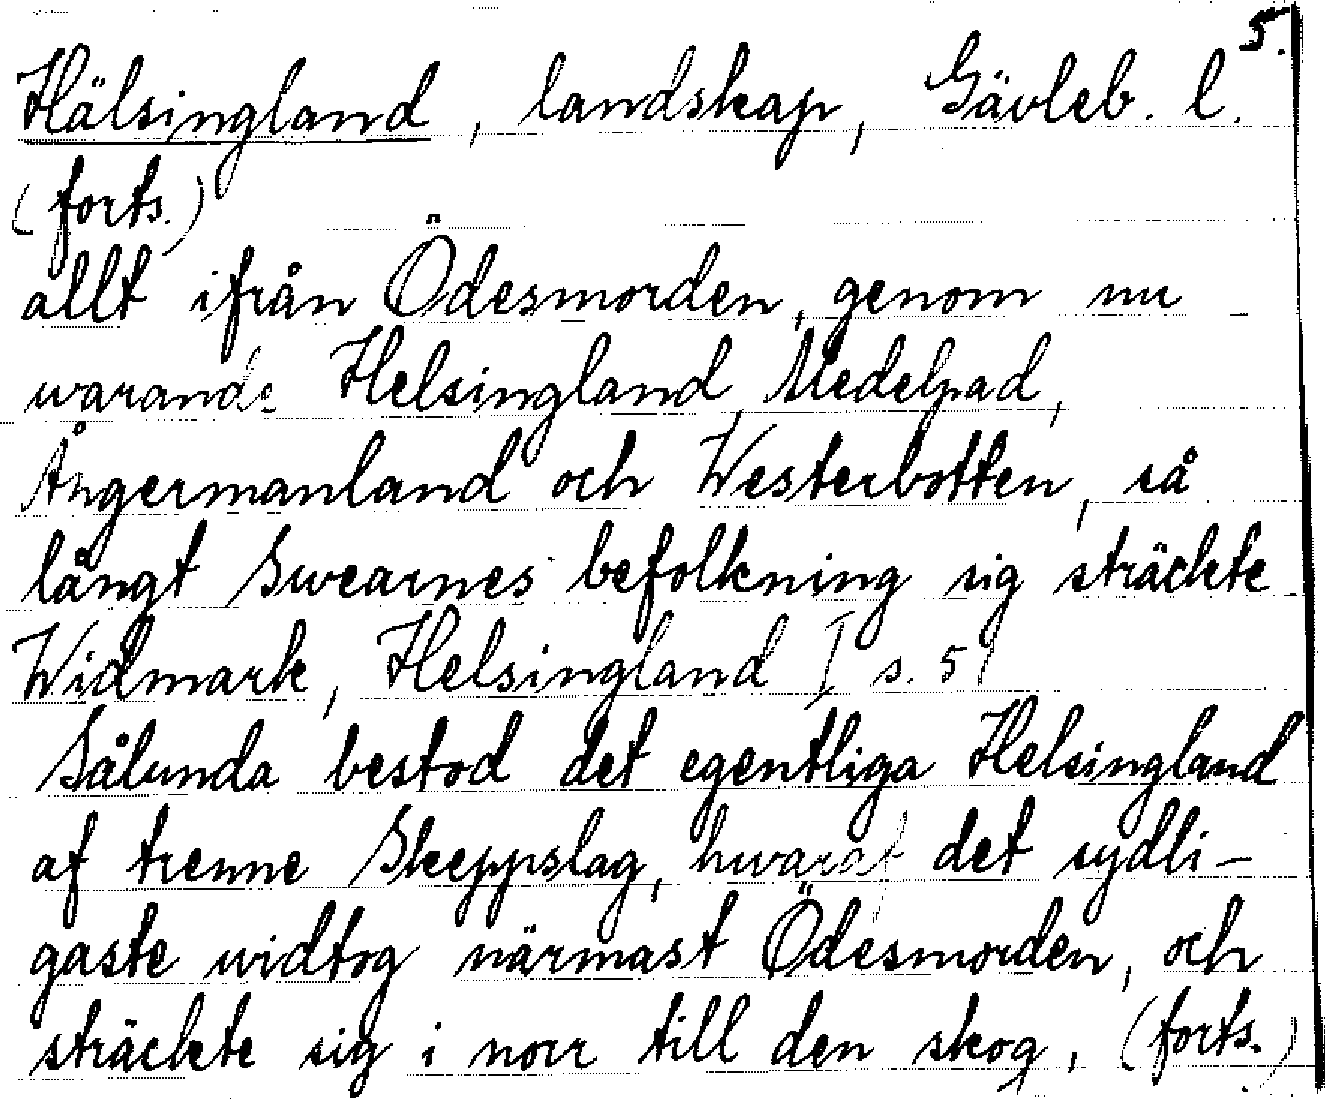 5.
Hälsingland, landskap, Gävleb. l.
(forts.)
allt ifrån Ödesmorden, genom nu -
warande Helsingland, Medelpad,
Ångermanland och Westerbotten, så
långt Swearnes befolkning sig sträckte
Widmark, Helsingland I s. 51
Sålunda bestod det egentliga Helsingland
af trenne Skeppslag, hwaraf det sydli-
gaste widtog närmast Ödesmorden, och
sträckte sig i norr till den skog, (forts.)